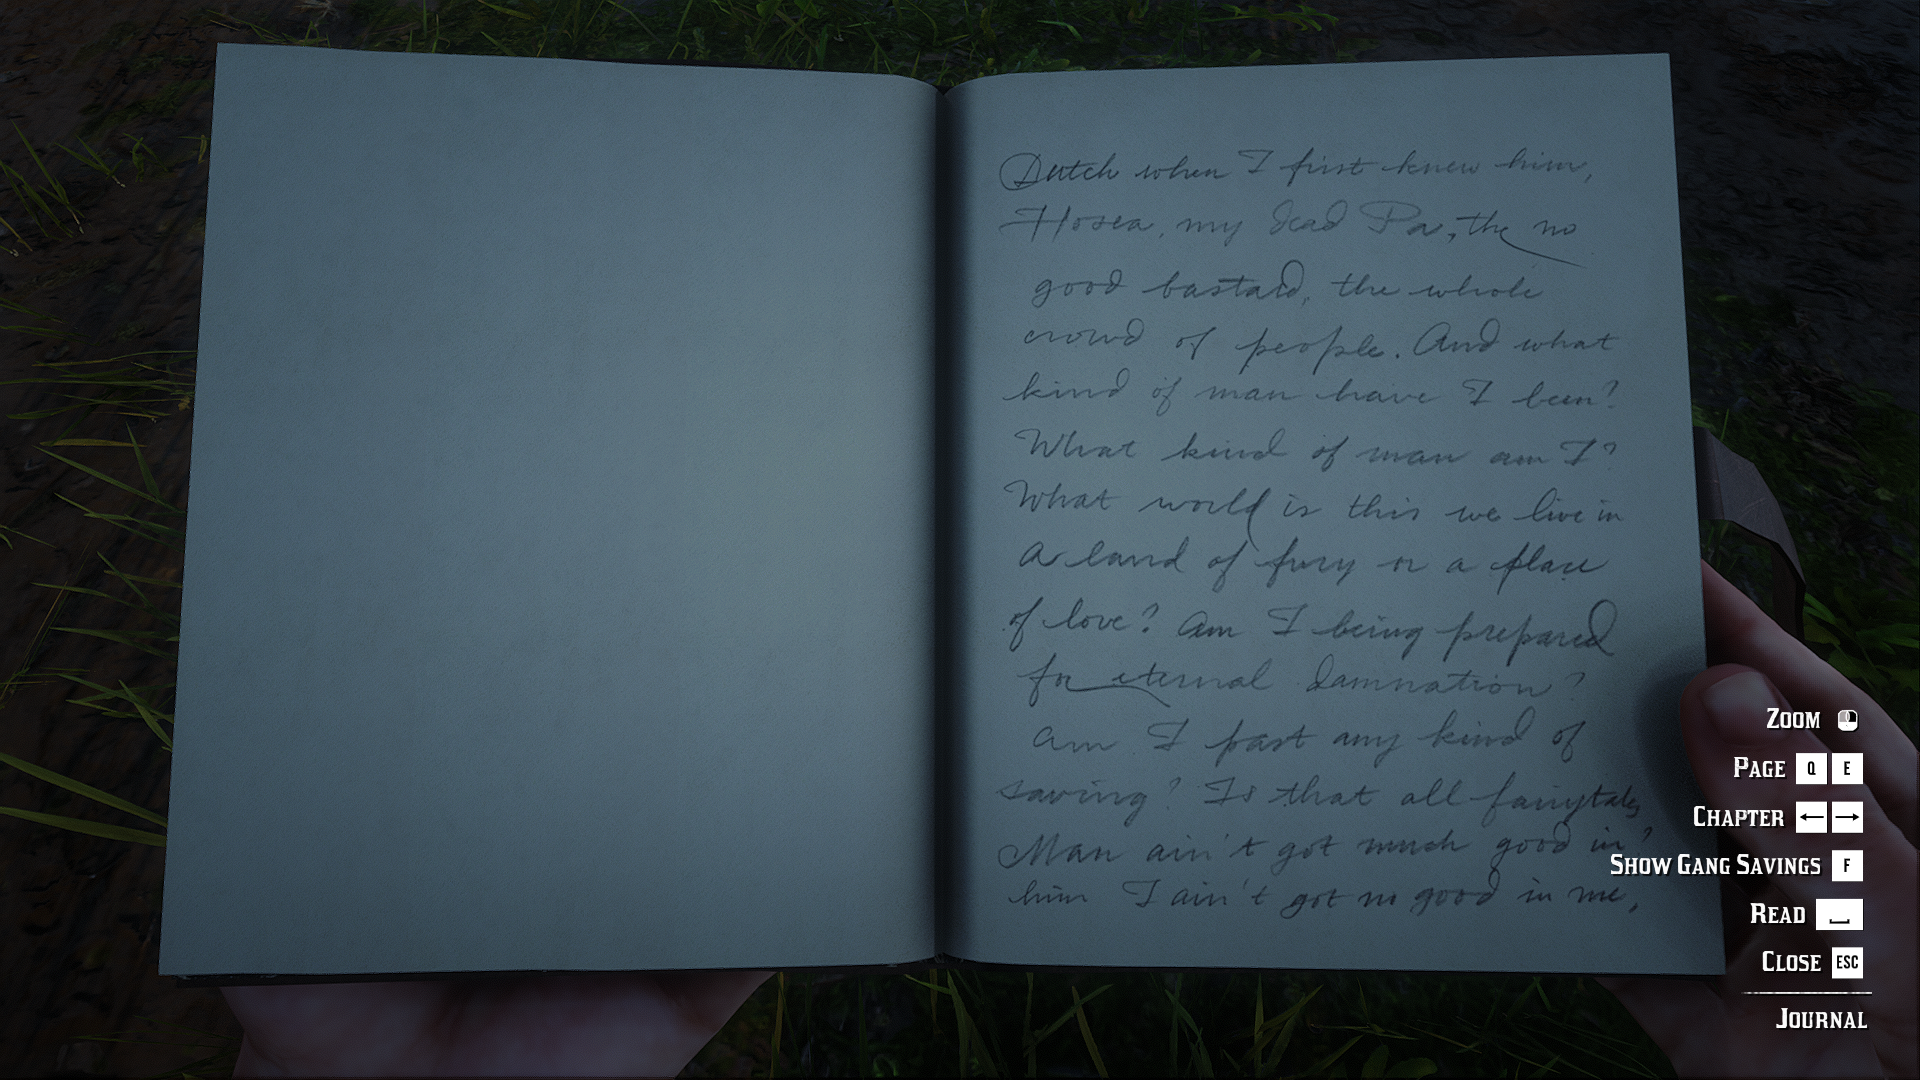 Dutch when I first knew him,
Hosea, my dead Pa, the no
good bastard, the whole
crowd of people. And what
kind of man have I been?
What kind of man am I?
What world is this we live in
a land of fury or a place
of love? Am I being prepared
for eternal damnation?
Am I past any kind of
saving? Is that all fairytales?
Man ain't got much good in
him I ain't got no good in me,
ZOOM
PAGE Q E
CHAPTER ← →
SHOW GANG SAVINGS F
READ
CLOSE ESC
JOURNAL